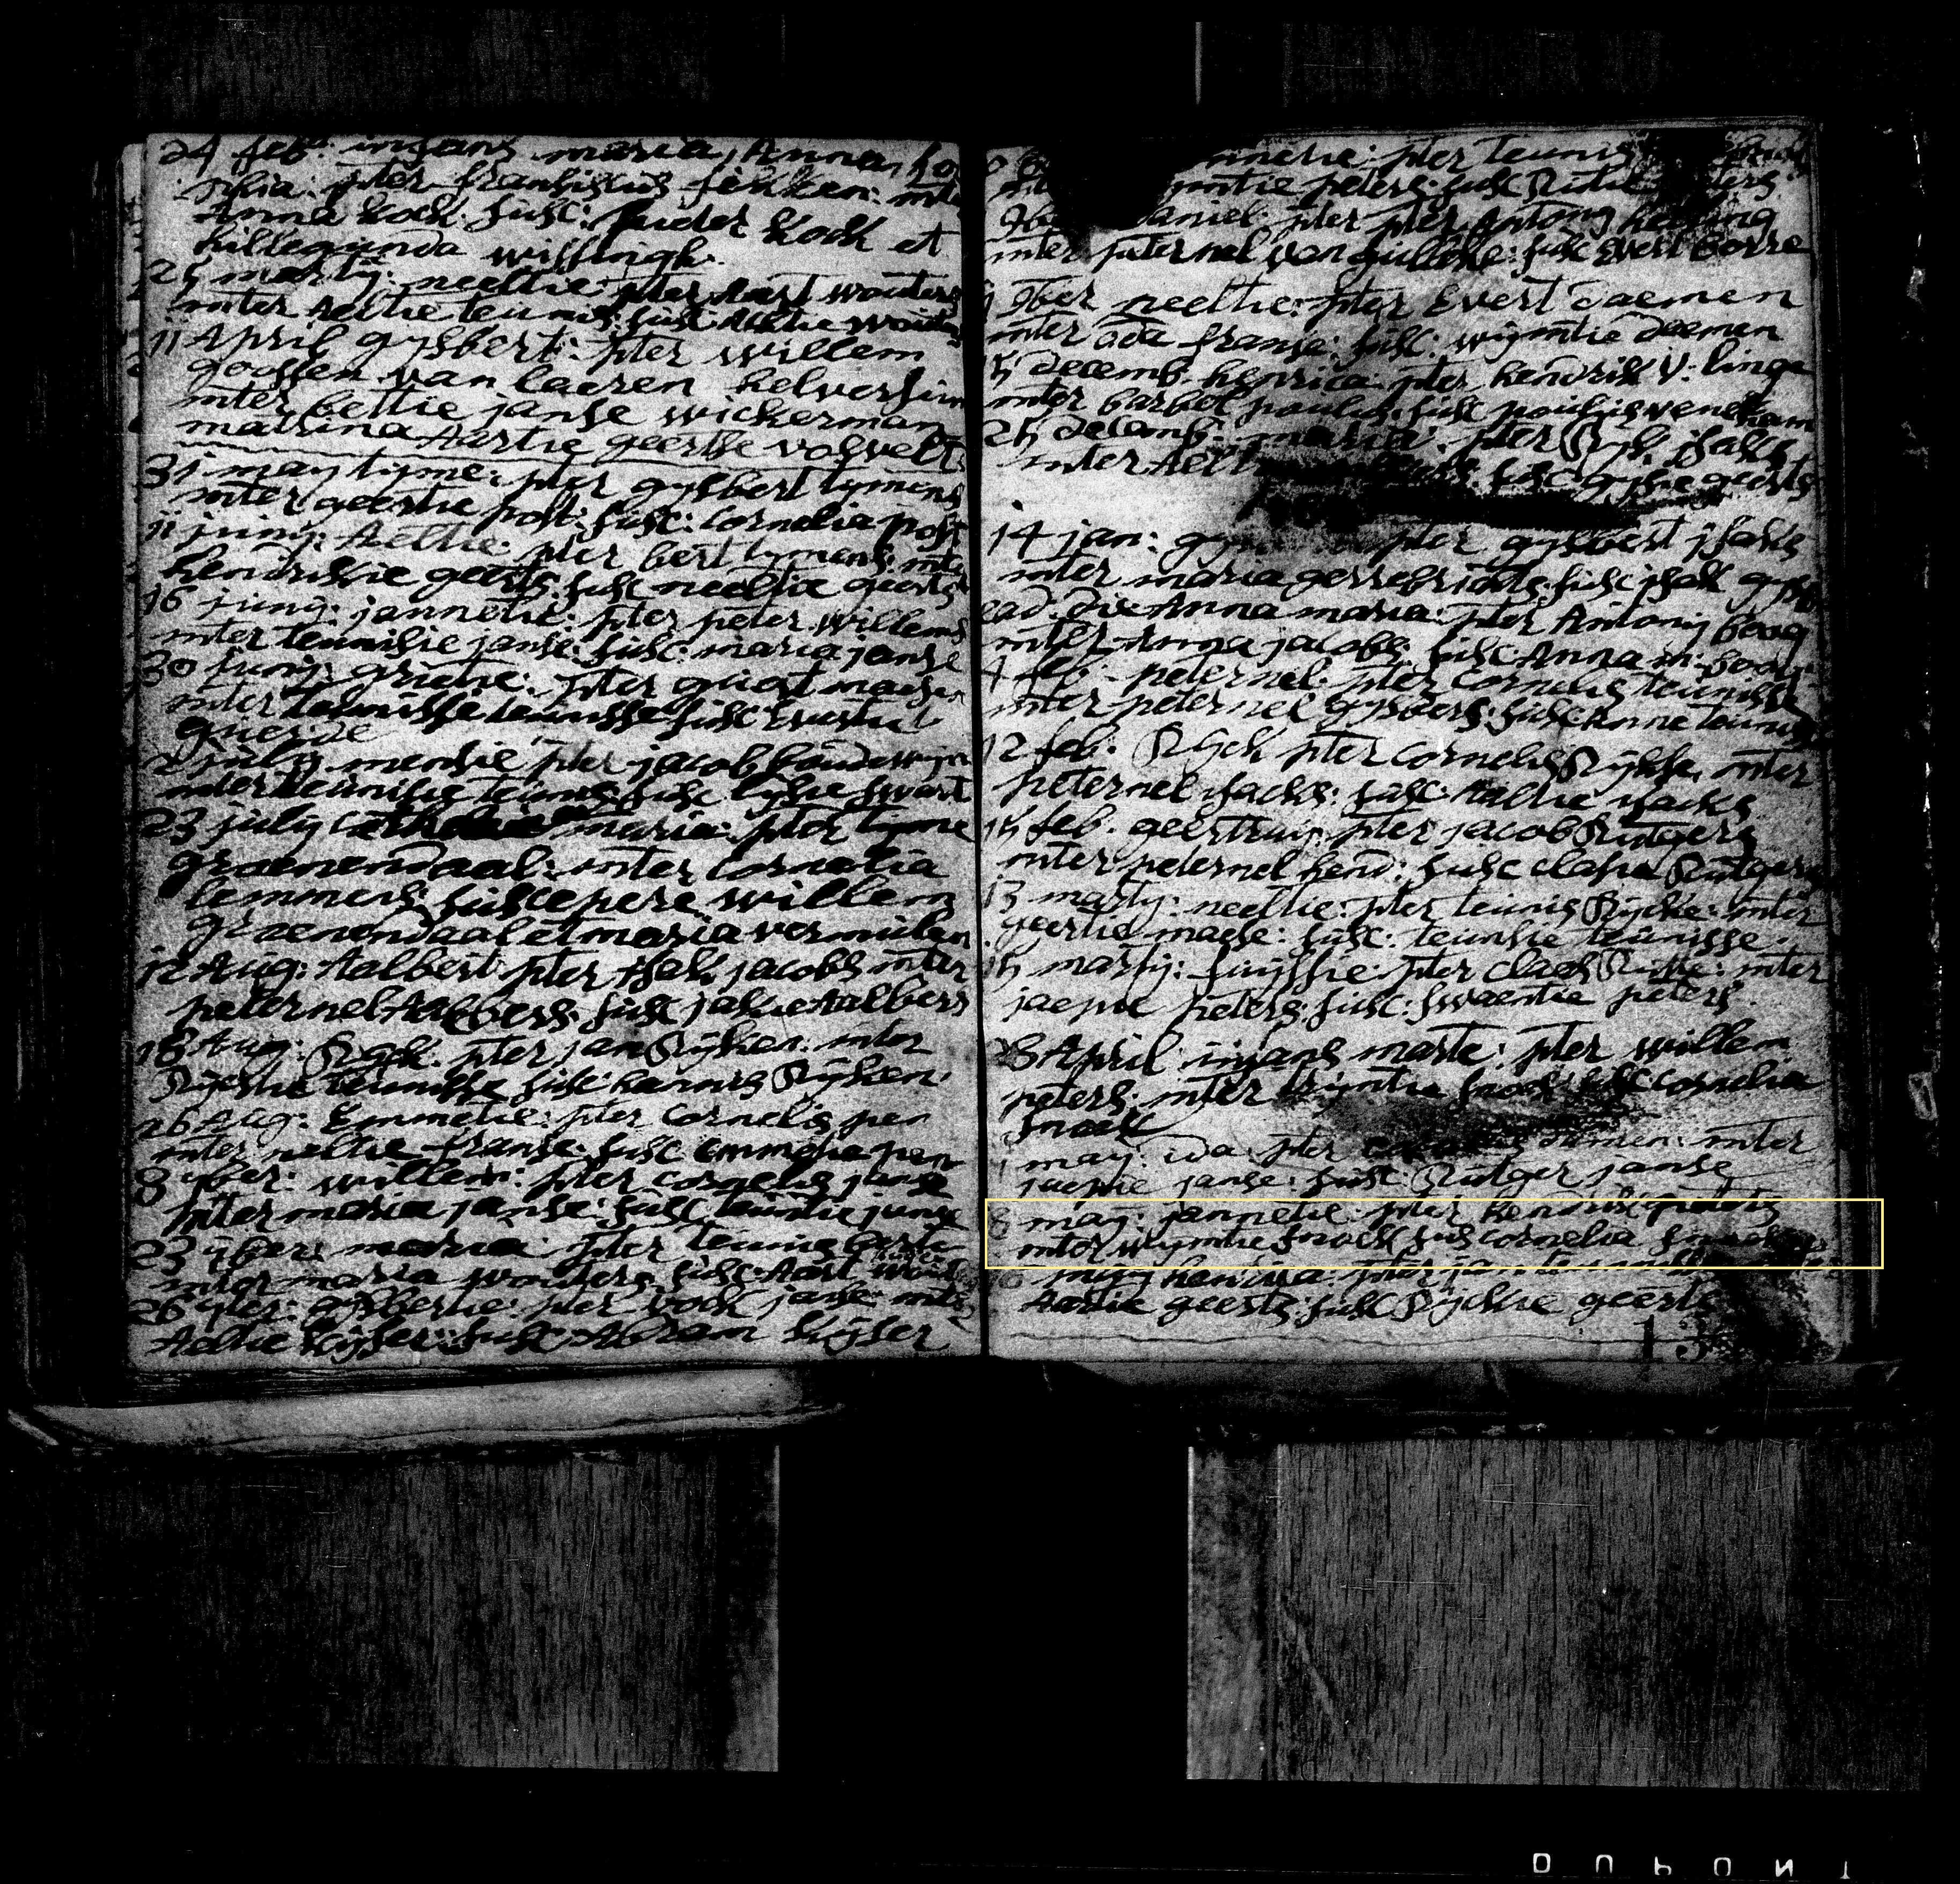 24 feb: infans maria, Anna, so
phia: pter franfiscus fikken: mter
Anna Kock. susc: pieter Kock et
hillegunda wissingh.
25 marty: neeltie: pter Aart wouters
mter Aeltie teunis: susc Aeltie wouters
11 April gysbert: pter willem
goossen van laeren helversum
mter bettie janse wickerman
matrina Aartie geertse volvelt
31 may tyme: pter gysbert tymens
mter geertie post: susc: Cornelia post
11 juny: Aeltie: pter bert tymens mter
hendrikie geerts: susc neeltie geerts
16 juny: jannetie: pter peter willems
mter teunisie janse: susc: maria janse
30 juny: grietie: pter
mter teunisse teunisse susc
2 july mensie pter jacob boudewyn
mter teunisie teunis susc lysie swart
23 july maria: pter tyme
groenendaal: mter Cornelia
lemmens suscepere willem
groenendaal et maria vermeulen
12 Aug: Aalbert pter jsak jacobs mter
peternel Aalbers: susc jakie Aalbers
18 Aug: Ryck. pter jan Ryken: mter
Ryckie teunisse susc hannis Ryken:
26 Aug: Emmetie: pter Cornelis pen
mter neltie franse: susc emmetie pen
8 yber: willem: pter cornelis janse
mter maria janse: susc teuntie janse
23 yber: maria: pter teunis berts
mter maria wouters: susc: Aart wouters
26 yber: gysbertie: pter vock janse mter
Aeltie Kyser: susc Abram Kyser
pter teunis
peters: susc Rutger
daniel: pter Antony
mter peternel van gulicke: susc Evert borre
9ber neeltie: pter Evert daemen
mter ada franse: susc: wijmtie daemen
15 decemb. henrica: pter hendrik v: linge
mter barbel poulus: susc poulus
25 decemb: maria: pter Ryk jsaks
mter Aelt susc gysie geerts
14 jan: pter gysbert jsaks
mter maria gerrebrichts: susc jsak gysb
ead: die Anna maria: pter Antonij boog
mter Anna jacobs: susc: Anna m: boog
4 feb: peternel: pter Cornelis teunisse
mter peternel gysbers: susc Anne teunis
12 feb: Ryck pter Cornelis Rykse, mter
peternel jsacks: susc: Aaltie jsacks
15 feb. geertruy: pter jacob Rutgers
mter peternel hend: susc clasie Rutgers
13 marty: neeltie: pter teunis Rycke: mter
geertie maese: susc: teunsie teunisse.
15 marty: pter claes mter
jaepie peters: susc: swaentie peters
28 April infans marte: pter willem
peters: mter wijmtie snoek susc cornelia
snoek
1 may: ida pter damen: mter
jaepie janse: susc Rutger janse
8 may: jannetie: pter hendrik peters
mter wijmtie snoek susc cornelia snoek
henrica pter jan teunisse
Aartie geerts: susc Ryckie geerts
13
DUPONT